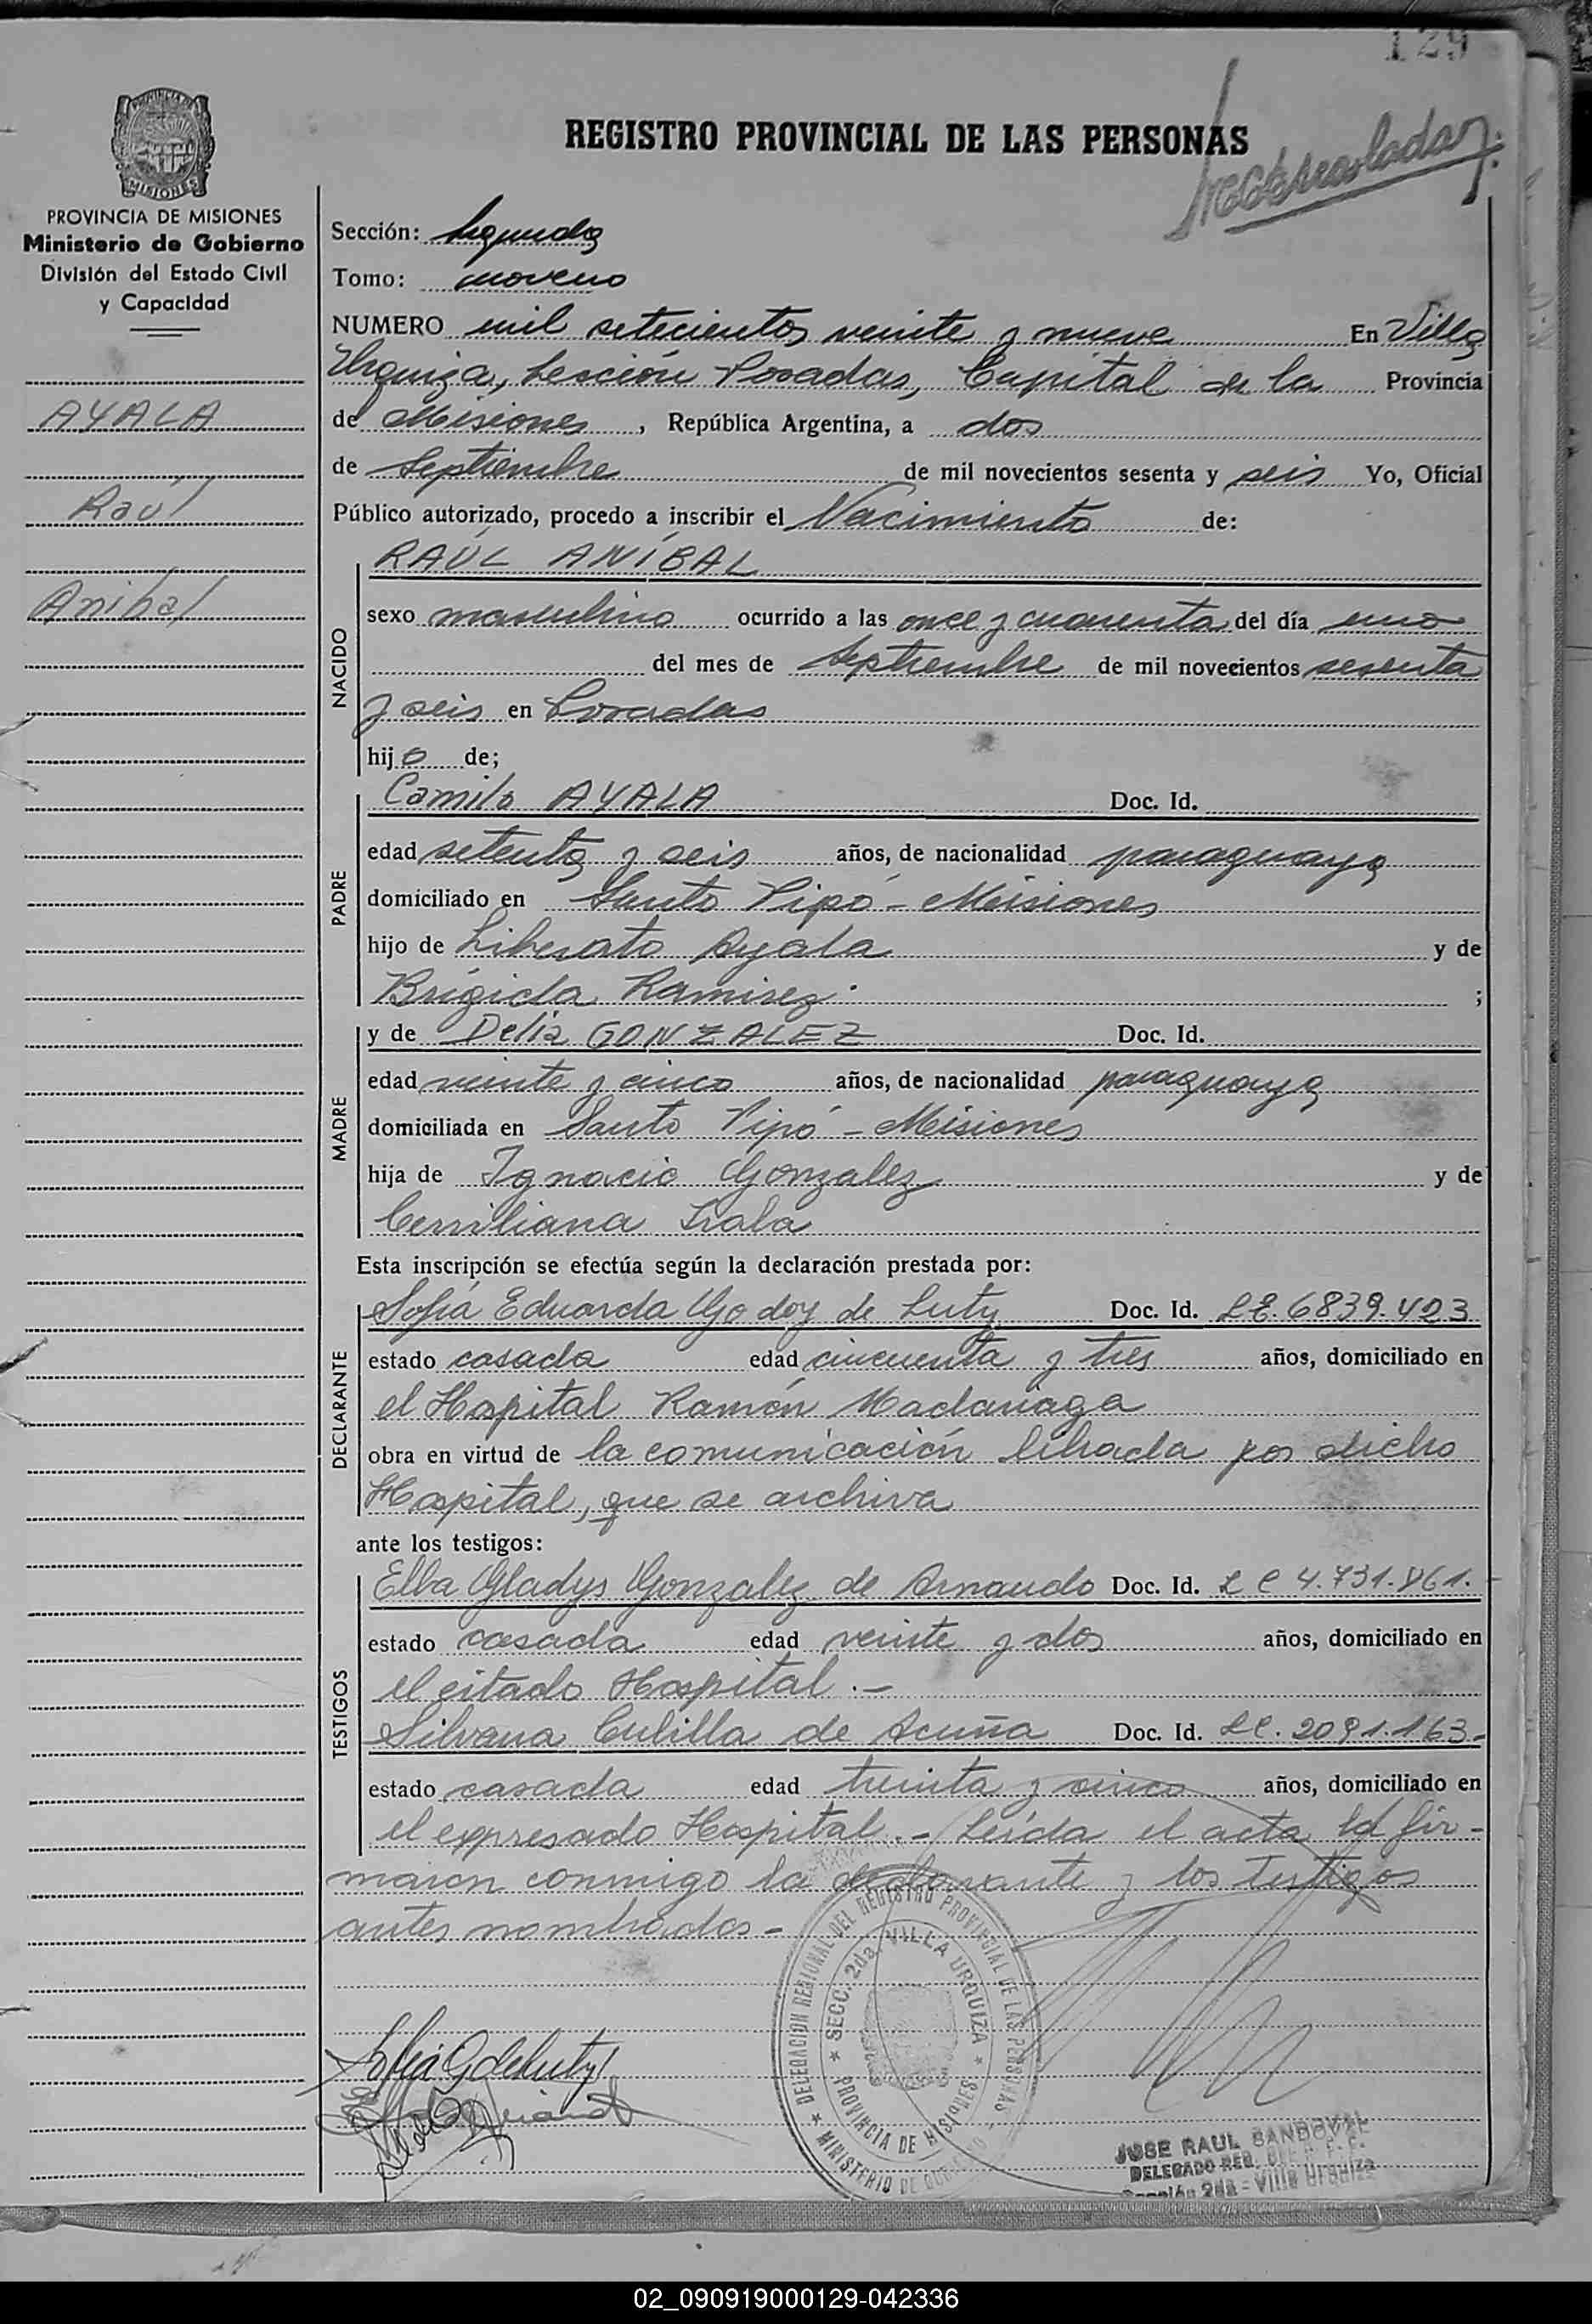 129
REGISTRO PROVINCIAL DE LAS PERSONAS
PROVINCIA DE MISIONES
Ministerio de Gobierno
División del Estado Civil
y Capacidad
AYALA
Raúl
Anibal
Sección: Segunda
Tomo: noveno
NUMERO mil setecientos veinte y nueve En Villa
Urquiza, Sección Posadas, Capital de la Provincia
de Misiones, República Argentina, a dos
de Septiembre de mil novecientos sesenta y seis Yo, Oficial
Público autorizado, procedo a inscribir el Nacimiento de:
NACIDO
RAÚL ANÍBAL
sexo masculino ocurrido a las once y cuarenta del día uno
del mes de Septiembre de mil novecientos sesenta
y seis en Posadas
hijo de;
PADRE
Camilo AYALA Doc. Id.
edad setenta y seis años, de nacionalidad paraguaya
domiciliado en Santo Pipó - Misiones
hijo de Liberato Ayala y de
Brígida Ramirez ;
MADRE
y de Delia GONZALEZ Doc. Id.
edad veinte y cinco años, de nacionalidad paraguaya
domiciliada en Santo Pipó - Misiones
hija de Ignacio Gonzalez y de
Irala
Esta inscripción se efectúa según la declaración prestada por:
DECLARANTE
Sofía Eduarda Godoy de Luty Doc. Id. 6839.423
estado casada edad cincuenta y tres años, domiciliado en
el Hospital Ramón Madariaga
obra en virtud de la comunicación librada por dicho
Hospital, que se archiva
ante los testigos:
TESTIGOS
Elba Gladys Gonzalez de Arnaudo Doc. Id. L C 4.731.861.
estado casada edad veinte y dos años, domiciliado en
el citado Hospital.-
Silvana Culilla de Acuña Doc. Id. LC. 2091.163-
estado casada edad treinta y cinco años, domiciliado en
el expresado Hospital.- Leída el acta la fir-
maron conmigo la declarante y los testigos
antes nombrados-
Sofía G de Luty
DELEGACION REGIONAL DEL REGISTRO PROVINCIAL DE LAS PERSONAS
SECC. 2da. VILLA URQUIZA
PROVINCIA DE MISIONES
MINISTERIO DE GOBIERNO
JOSE RAUL SANDOVAL
DELEGADO REG.
Sección 2da - Villa Urquiza
02_090919000129-042336